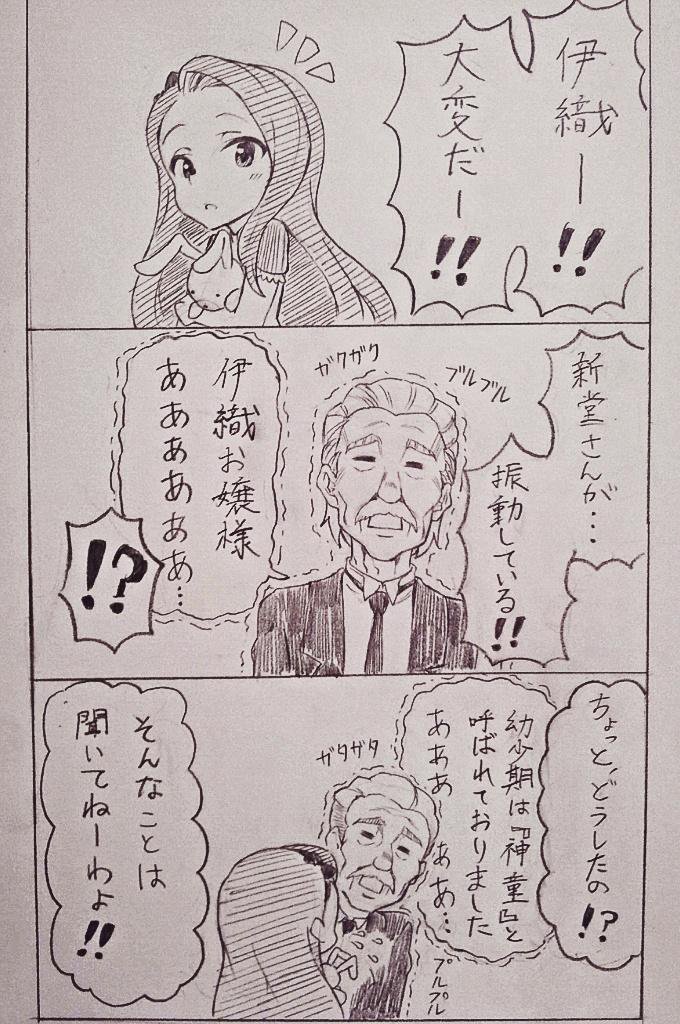 伊織ー!!
大変だー!!
新堂さんが…
振動している!!
ガクガク
ブルブル
伊織お嬢様
ああああああ…
!?
ちょっと、どうしたの!?
幼少期は『神童』と
呼ばれておりました
あああ ああ…
ガタガタ
プルプル
そんなことは
聞いてねーわよ!!